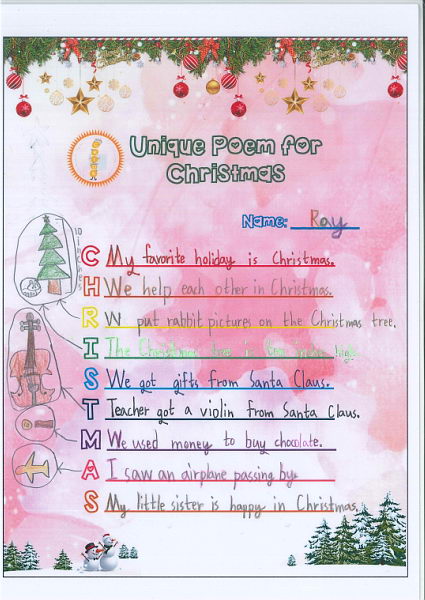 Unique Poem for
Christmas
Name: Ray
10 INCHES
C My favorite holiday is Christmas.
H We help each other in Christmas.
R W put rabbit pictures on the Christmas tree.
I The Christmas tree is ten inches high.
S We got gifts from Santa Claus.
T Teacher got a violin from Santa Claus.
M We used money to buy chocolate.
A I saw an airplane passing by
S My little sister is happy in Christmas.